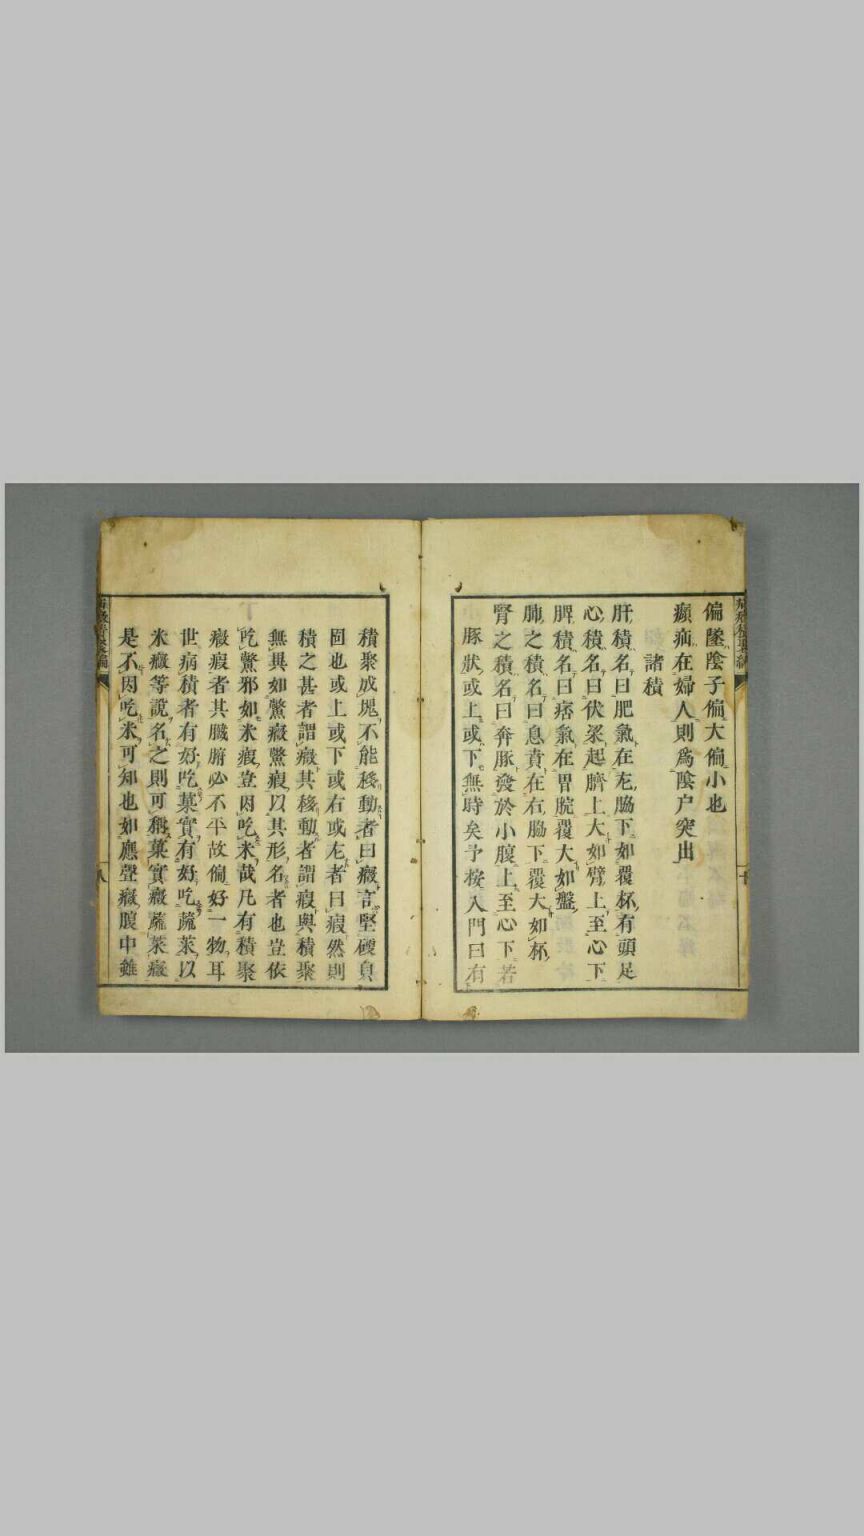 偏墜陰子偏大偏小也
癩疝在婦人則為陰户突出
諸積
肝積名曰肥氣在左脇下如覆杯有頭足
心積名曰伏梁起臍上大如臂上至心下
脾積名曰痞氣在胃脘覆大如盤
肺之積名曰息賁在右脇下覆大如杯
腎之積名曰奔豚發於小腹上至心下若
豚狀或上或下無時矣予按入門曰有
積聚成塊不能移動者曰癥言堅硬貞
固也或上或下或右或左者曰瘕然則
積之甚者謂癥其移動者謂瘕與積聚
無異如鱉癥鱉瘕以其形名者也豈依
吃鱉邪如米瘕豈因吃米哉凡有積聚
癥瘕者其臟腑必不平故偏好一物耳
世病積者有好吃菓實有好吃蔬菜以
米癥等說名之則可稱菓實癥蔬菜癥
是不因吃米可知也如應聲癥腹中雖
十
八